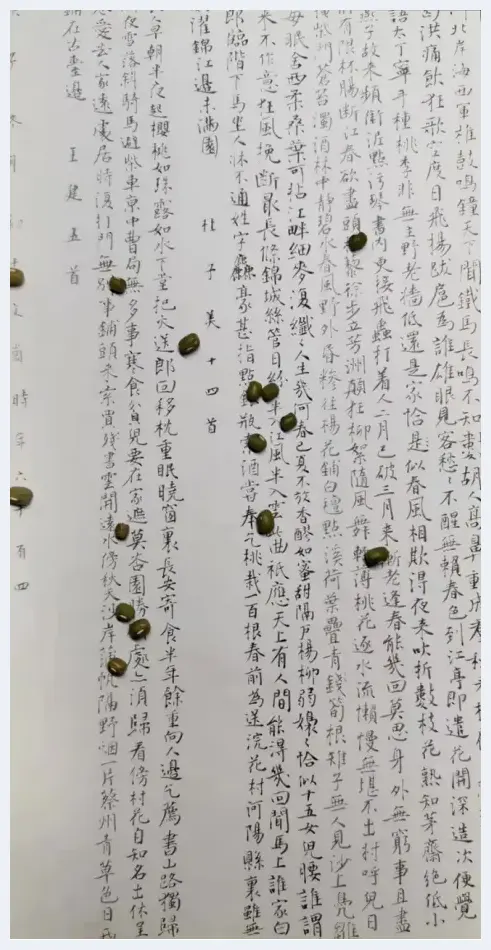 北岸海西軍雄鼓鳴鐘天下聞鐵馬長鳴不知數胡人高鼻動成羣
洪痛飲狂歌空度日飛揚跋扈為誰雄眼見客愁〻不醒無賴春色到江亭即遣花開深造次便覺
語太丁寧手種桃李非無主野老牆低還是家恰是似春風相欺得夜來吹折數枝花熟知茅齋絕低小
燕子故來頻銜泥點污琴書內更接飛蟲打着人二月已破三月來漸老逢春能幾回莫思身外無窮事且盡
前有限杯腸斷江春欲盡頭藜徐步立芳洲顛狂柳絮隨風舞輕薄桃花逐水流懶慢無堪不出村呼兒日
柴門蒼苔濁酒林中靜碧水春風野外昏糝徑楊花鋪白氈點溪荷葉疊青錢筍根雉子無人見沙上鳧雛
母眠舍西柔桑葉可拈江畔細麥復纖〻人生幾何春已夏不放香醪如蜜甜隔戶楊柳弱嫋〻恰似十五女兒腰誰謂
來不作意狂風挽斷最長條錦城絲管日紛半入江風半入雲此曲祇應天上有人間能得幾回聞馬上誰家白
郎臨階下馬坐人牀不通姓字麤豪甚指點銀瓶索酒嘗奉乞桃栽一百根春前為送浣花村河陽縣裏雖無
濯錦江邊未滿園
杜子美十四首
早朝半夜起櫻桃如珠露如水下堂把火送郎回移枕重眠曉窗裏長安寄食半年餘重向人邊乞薦書山路獨歸
夜雪落斜騎馬避柴車京中曹局無多事寒食貧兒要在家遮莫杏園勝處亦須歸看傍村花自知名出休呈
愛去人家遠處居時復打門無別事鋪頭來索買殘書雲開遠水傍秋天沙岸蒲帆隔野烟一片蔡州青草色日西
鋪在古臺邊
王建五首
文歲時年六十有四